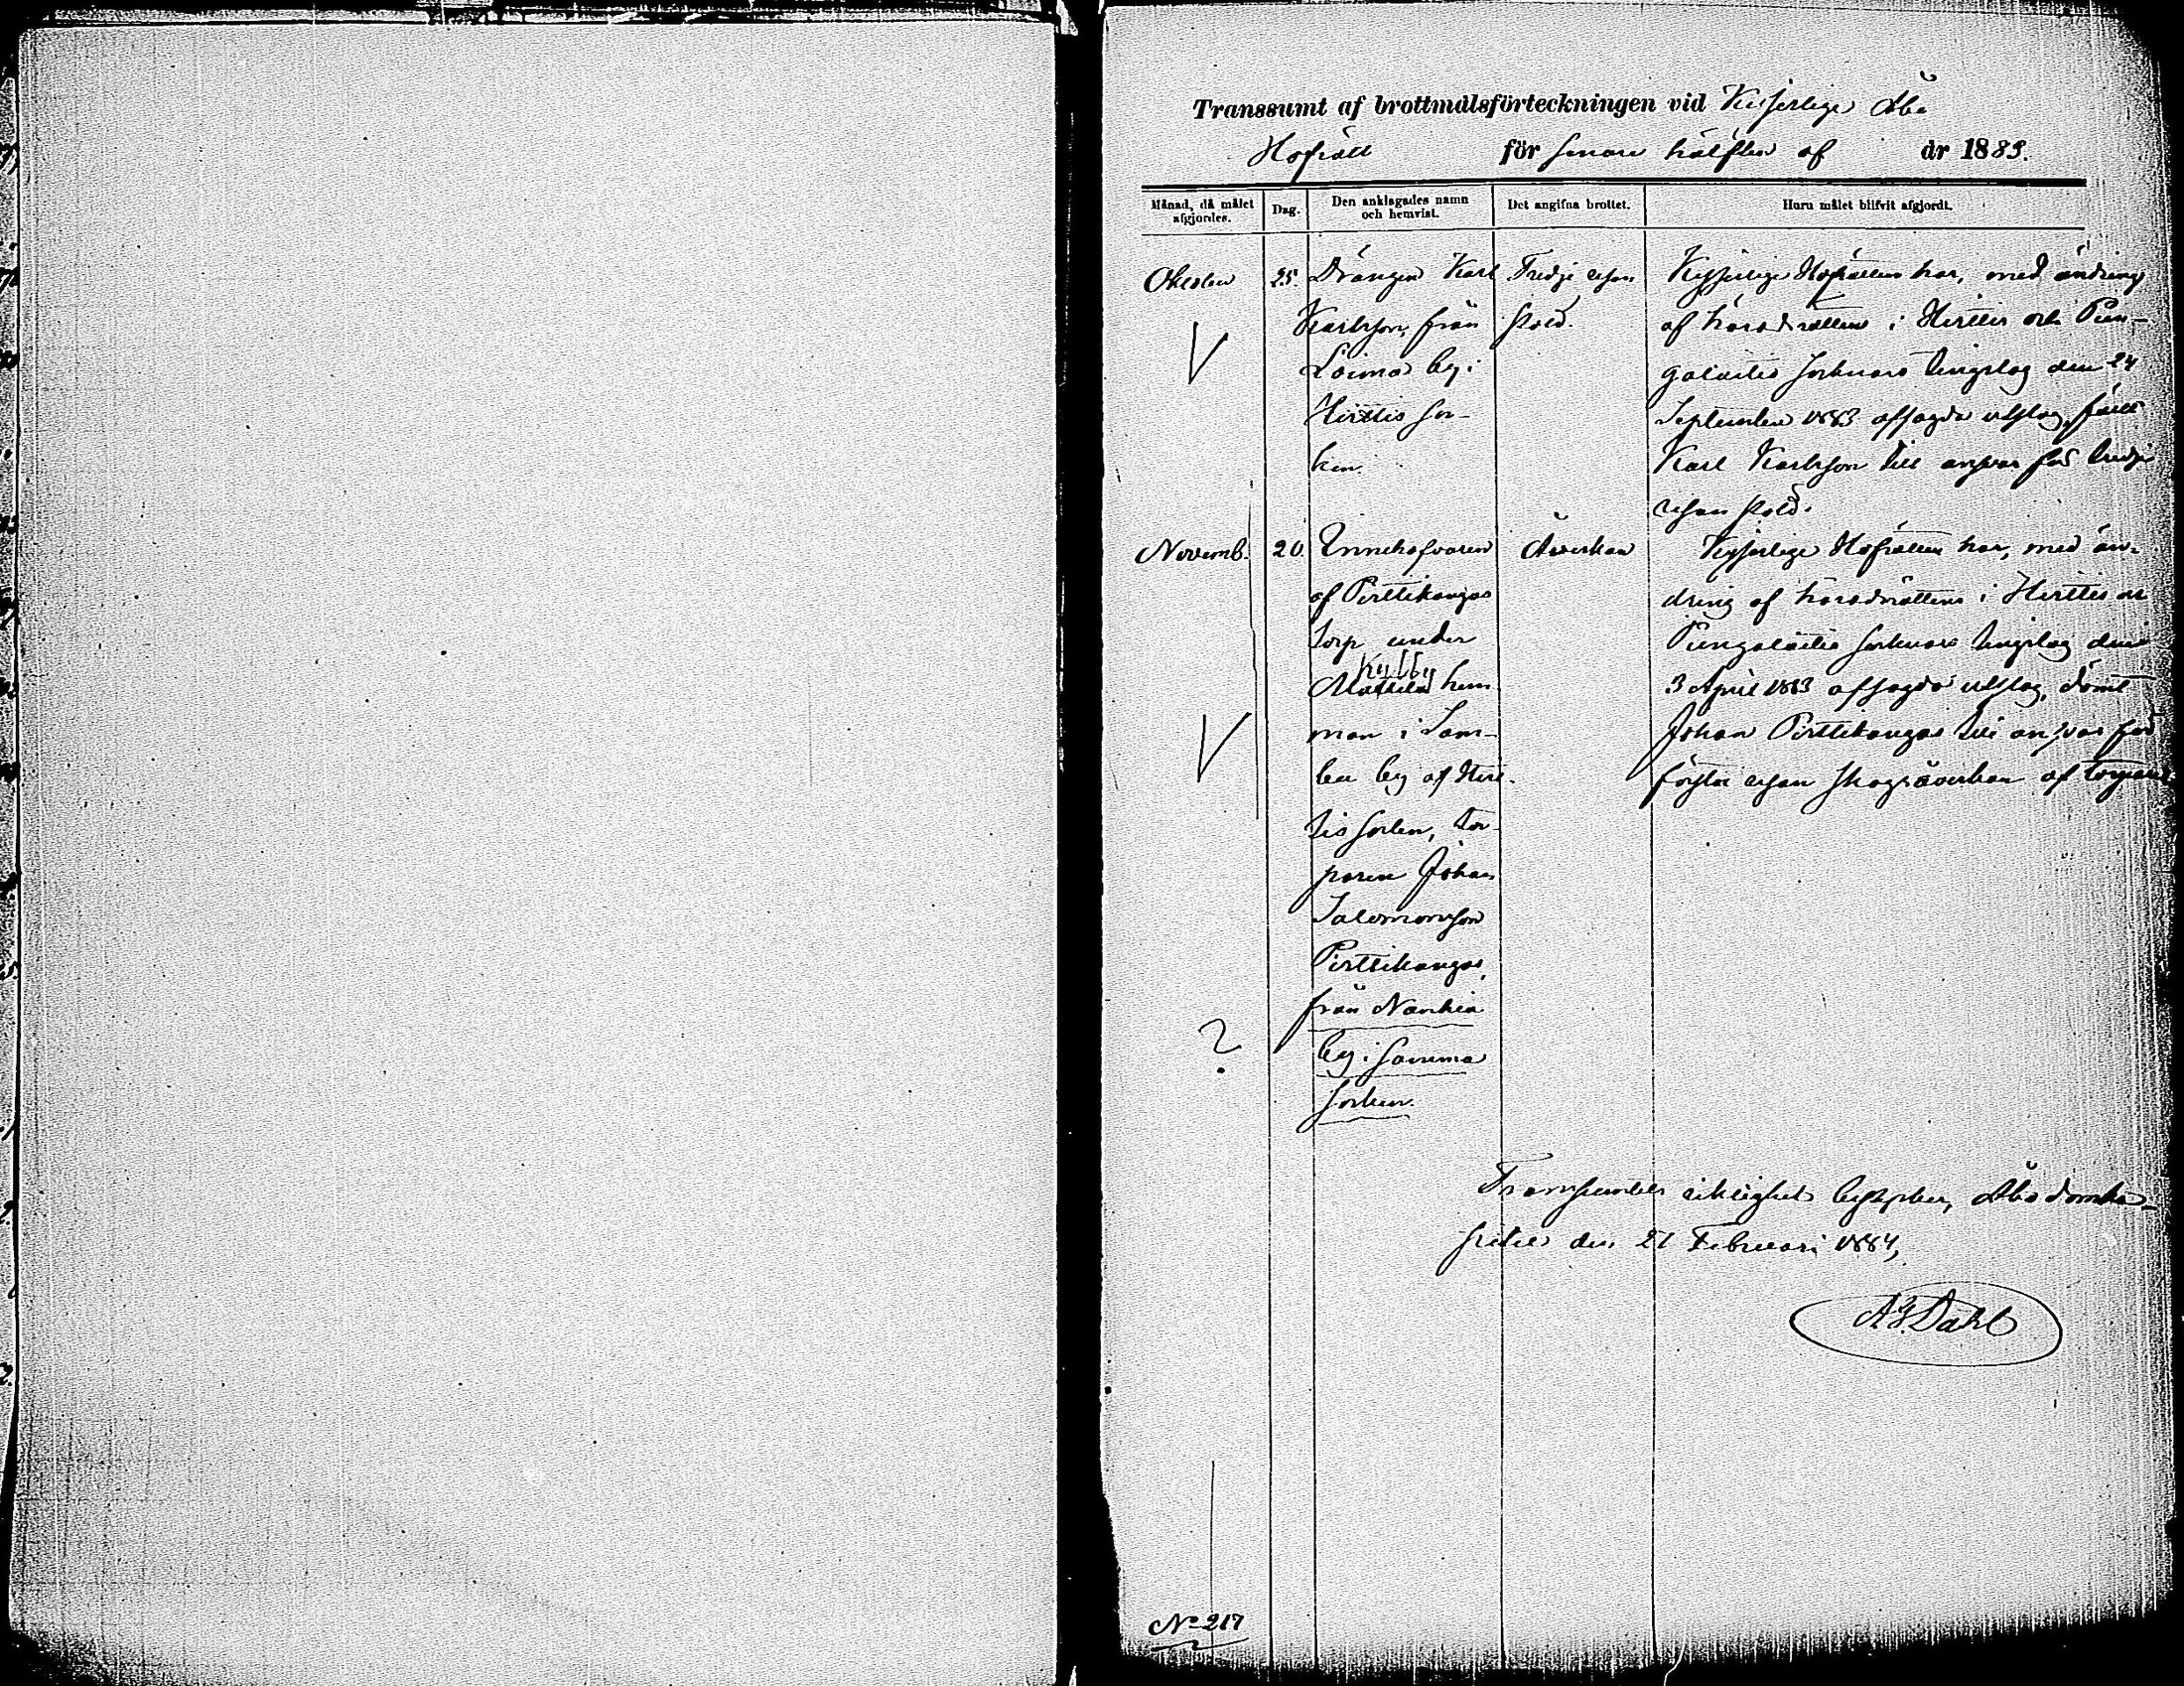 Transsumt af brottmålsförteckningen vid Kejserlige Åbo
Hofrätt för senare hälften af år 1883.
Månad, då målet afgjordes. Dag. Den anklagades namn och hemvist. Det angifna brottet. Huru målet blifvit afgjordt.
Oktober 25. Drängen Karl
Karlsson, från
Loima by i
Hirttis soc-
ken.
Tredje resan
stöld.
Kejserlige Hofrätten har, med ändring
af häradsrättens i Hirttis och Pun-
galaitio socknars tingslag den 24
September 1883 afsagda utslag, fällt
Karl Karlsson till ansvar för tredje
resan stöld.
Novemb. 20. Innehafvaren
af Pirttikangas
torp under
Kylby
Mattila hem
man i Sam-
bu by af Hirt-
tis socken, tor-
paren Johan
Salomonsson
Pirttikangas,
från Narhia
by i samma
socken.
?
Åverkan
Kejserlige Hofrätten har, med än-
dring af häradsrättens i Hirttis och
Pungalaitio socknars tingslag den
3 April 1883 afsagda utslag, dömt
Johan Pirttikangas till ansvar för
första resan skogsåverkan af torpare
Transsumtets riktighet betygar, Åbo domka-
pitel den 21 Februari 1884,
A. Dahl
No 217